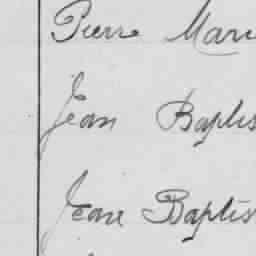 Pierre Mari
Jean Baptis
Jean Baptis